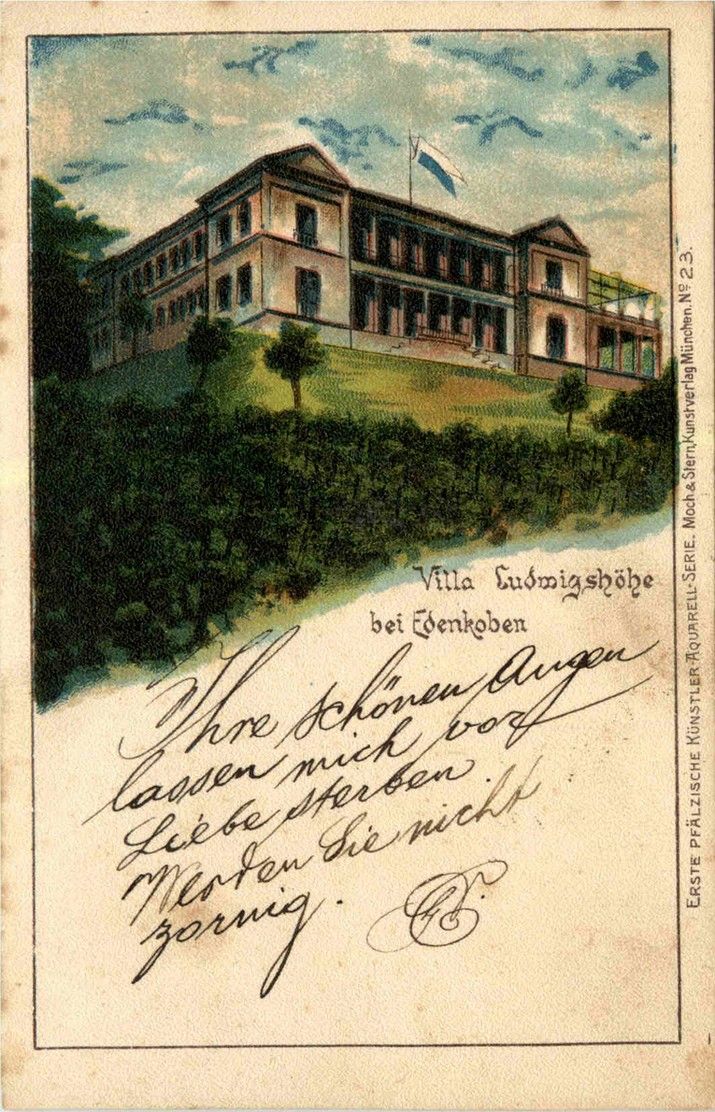 Villa Ludwigshöhe
bei Edenkoben
Ihre schönen Augen
lassen mich vor
Liebe sterben.
Werden Sie nicht
zornig.
ERSTE PFÄLZISCHE KÜNSTLER-AQUARELL-SERIE. Moch & Stern, Kunstverlag München. No 23.